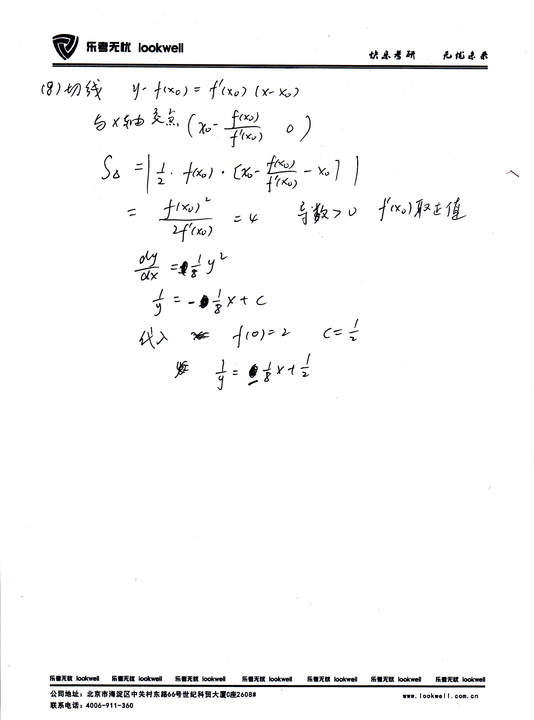 乐考无忧 lookwell
快乐考研 无忧未来
(8) 切线 y-f(x₀) = f'(x₀) (x-x₀)
与x轴交点 (x₀ - f(x₀)/f'(x₀) 0)
S△ = |1/2 · f(x₀) · [x₀ - f(x₀)/f'(x₀) - x₀]|
= f(x₀)²/2f'(x₀) = 4 导数>0 f'(x₀)取正值
dy/dx = 1/8 y²
1/y = -1/8 x + C
代入 f(0)=2 C=1/2
1/y = 1/8 x + 1/2
乐考无忧 lookwell 乐考无忧 lookwell 乐考无忧 lookwell 乐考无忧 lookwell 乐考无忧 lookwell 乐考无忧 lookwell 乐考无忧 lookwell
公司地址: 北京市海淀区中关村东路66号世纪科贸大厦C座2608# www.lookwell.com.cn
联系电话: 4006-911-360